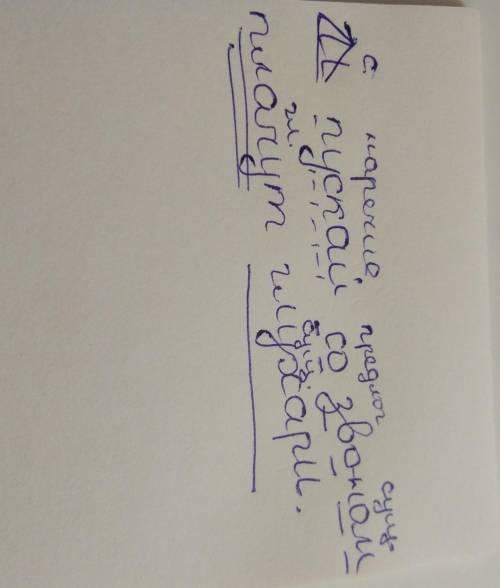 с. наречие предлог сущ.
И пускай со звонам
гл. сущ.
плачут глухари.